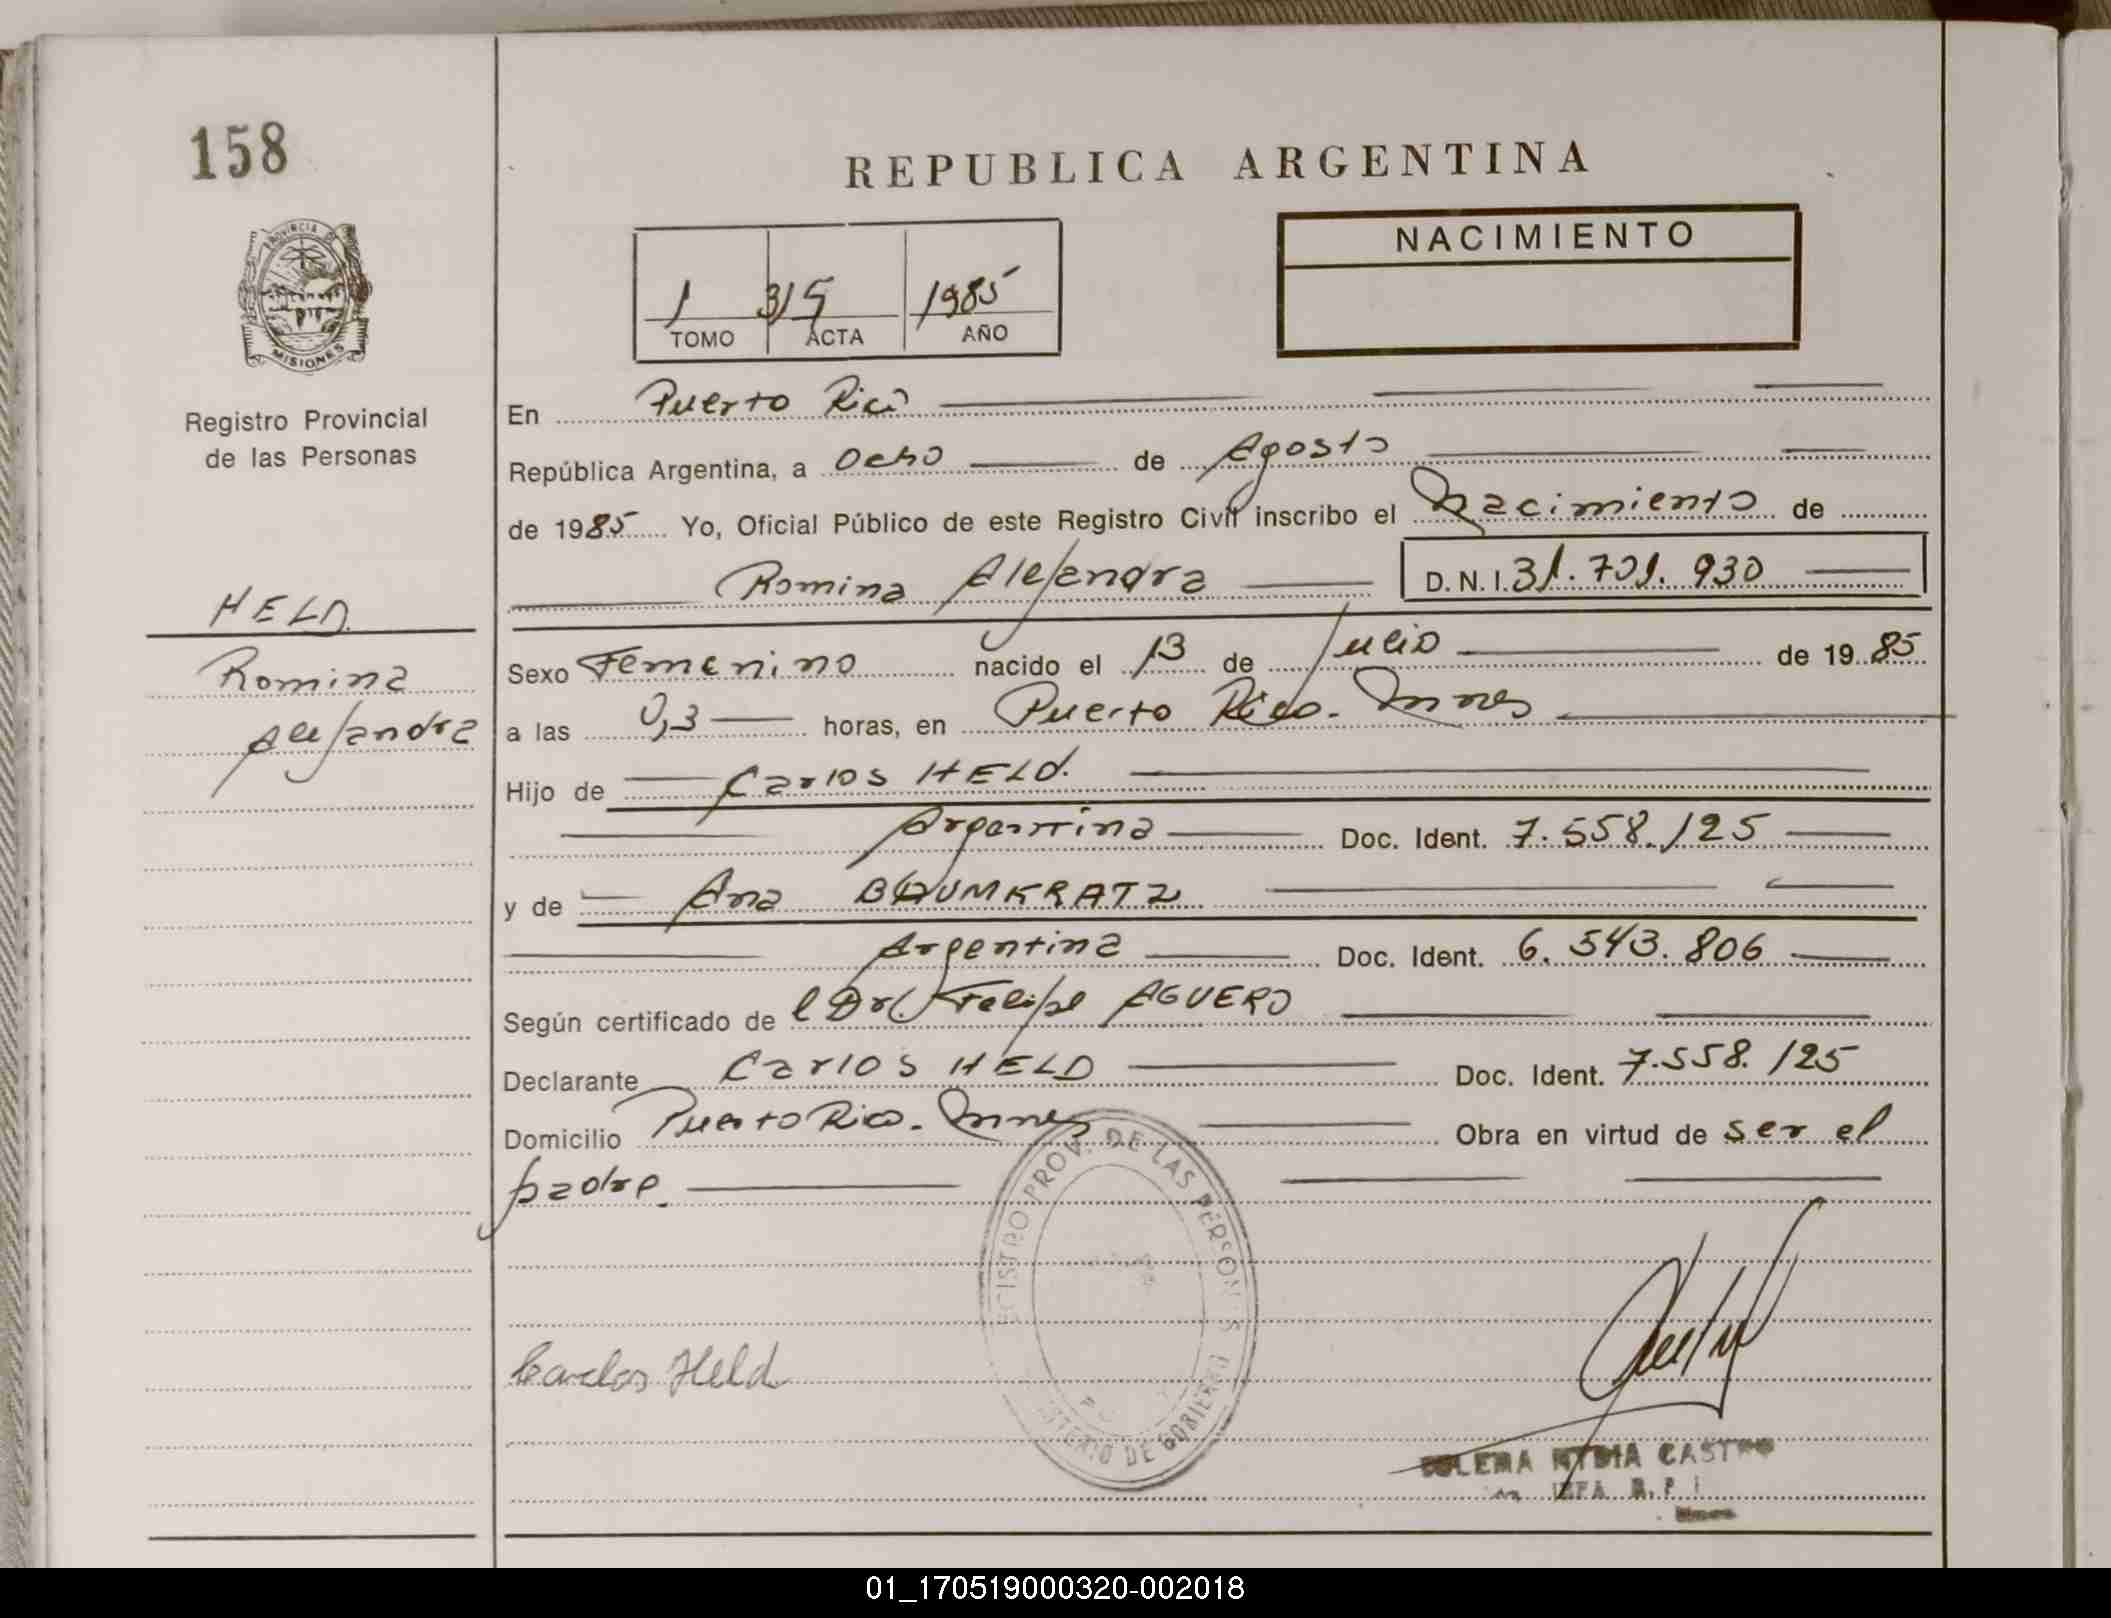 158
REPUBLICA ARGENTINA
NACIMIENTO
1 315 1985
TOMO ACTA AÑO
PROVINCIA DE
MISIONES
Registro Provincial
de las Personas
HELD
Romina
Alejandra
En Puerto Rico
República Argentina, a Ocho de Agosto
de 1985 Yo, Oficial Público de este Registro Civil inscribo el Nacimiento de
Romina Alejandra D.N.I. 31.701.930
Sexo Femenino nacido el 13 de Julio de 1985
a las 0,3 horas, en Puerto Rico. Mnes
Hijo de Carlos HELD.
Argentina Doc. Ident. 7.558.125
y de Ana BAUMKRATZ
Argentina Doc. Ident. 6.543.806
Según certificado de l Dr. Felipe AGUERO
Declarante Carlos HELD Doc. Ident. 7.558.125
Domicilio Puerto Rico. Mnes Obra en virtud de ser el
padre.
REGISTRO PROV. DE LAS PERSONAS
MINISTERIO DE GOBIERNO
Carlos Held
CASTRO
JEFA R.P.
01_170519000320-002018